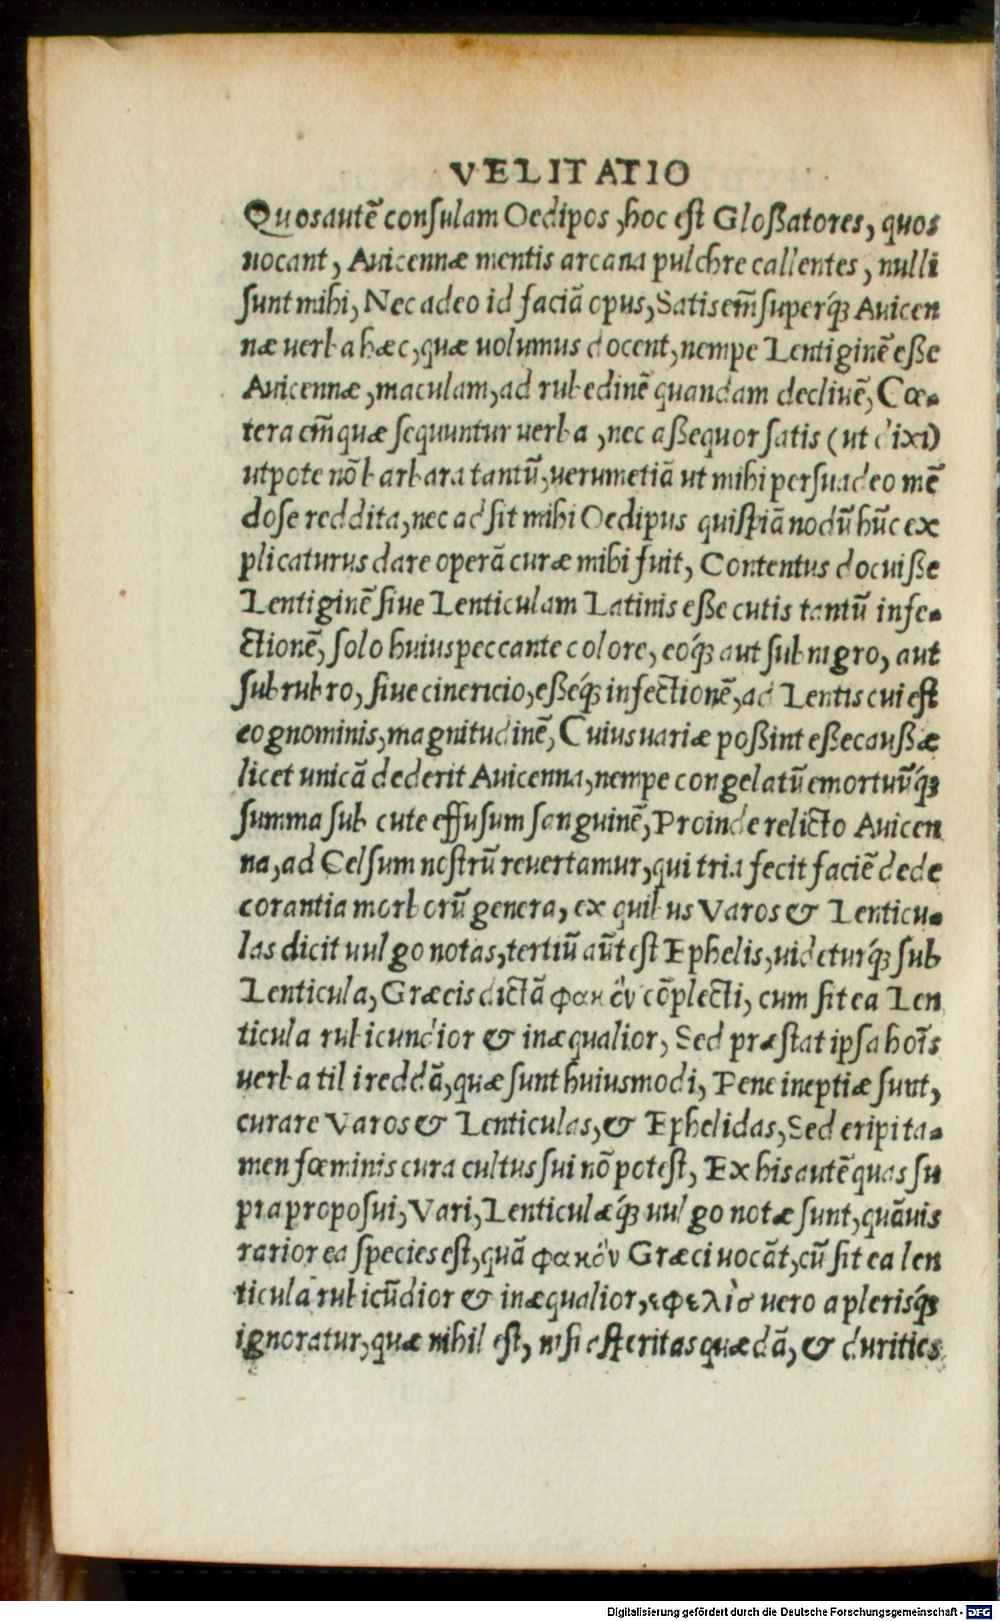 VELITATIO
Quos autē consulam Oedipos, hoc est Gloßatores, quos
uocant, Auicennæ mentis arcana pulchre callentes, nulli
sunt mihi, Nec adeo id faciā opus, Satis em̄ superq́ꝫ Auicen
næ uerba hæc, quæ uolumus docent, nempe Lentiginē eße
Auicennæ, maculam, ad rubedinē quandam decliuē, Cœ-
tera em̄ quæ sequuntur uerba, nec aßequor satis (ut dixi)
utpote nō barbara tantū, uerumetiā ut mihi persuadeo mē
dose reddita, nec adsit mihi Oedipus quispiā nodū hūc ex
plicaturus dare operā curæ mihi fuit, Contentus docuiße
Lentiginē siue Lenticulam Latinis eße cutis tantū infe-
ctionē, solo huius peccante colore, eoq́ꝫ aut subnigro, aut
subrubro, siue cinericio, eßeq́ꝫ infectionē, ad Lentis cui est
cognominis, magnitudinē, Cuius uariæ poßint eße caußæ
licet unicā dederit Auicenna, nempe congelatū emortuūq́ꝫ
summa sub cute effusum sanguinē, Proinde relicto Auicen
na, ad Celsum nostrū reuertamur, qui tria fecit faciē dede
corantia morborū genera, ex quibus Varos & Lenticu-
las dicit uulgo notas, tertiū aūt est Ephelis, uideturq́ꝫ sub
Lenticula, Græcis dictā φακὸν cōplecti, cum sit ea Len
ticula rubicundior & inæqualior, Sed præstat ipsa hoīs
uerba tibi reddā, quæ sunt huiusmodi, Pene ineptiæ sunt,
curare Varos & Lenticulas, & Ephelidas, Sed eripi ta-
men fœminis cura cultus sui nō potest, Ex his autē quas su
pra proposui, Vari, Lenticulæq́ꝫ uulgo notæ sunt, quāuis
rarior ea species est, quā φακὸν Græci uocāt, cū sit ea len
ticula rubicūdior & inæqualior, εφελὶσ uero a plerisq́ꝫ
ignoratur, quæ nihil est, nisi asteritas quædā, & durities
Digitalisierung gefördert durch die Deutsche Forschungsgemeinschaft - DFG